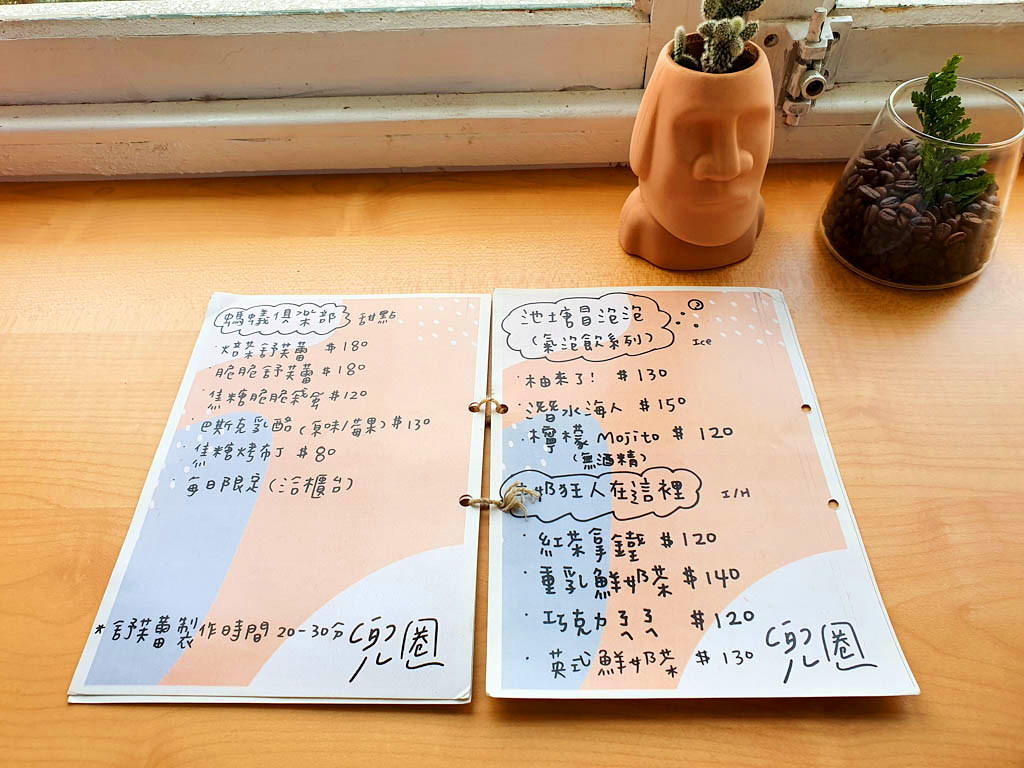 螞蟻俱樂部 甜點
·焙茶舒芙蕾 $180
·脆脆舒芙蕾 $180
·焦糖脆脆千層 $120
·巴斯克乳酪(原味/莓果) $130
·焦糖烤布丁 $80
·每日限定(洽櫃台)
*舒芙蕾製作時間 20-30分
兜圈
池塘冒泡泡
(氣泡飲系列) Ice
·柚來了! $130
·潛水海人 $150
·檸檬 Mojito $120
(無酒精)
奶狂人在這裡 I/H
·紅茶拿鐵 $120
·重乳鮮奶茶 $140
·巧克力ㄋㄟㄋㄟ $120
·英式鮮奶茶 $130
兜圈